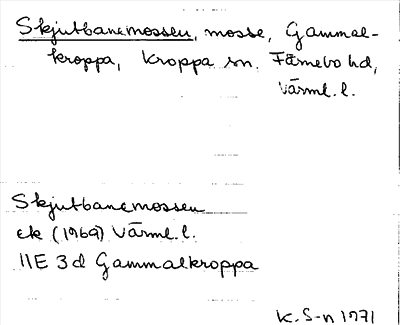 Skjutbanemossen, mosse, Gammal-
kroppa, Kroppa sn. Färnebo hd,
Värml. l.
Skjutbanemossen
ek (1969) Värml. l.
11E 3d Gammalkroppa
K. S-n 1971